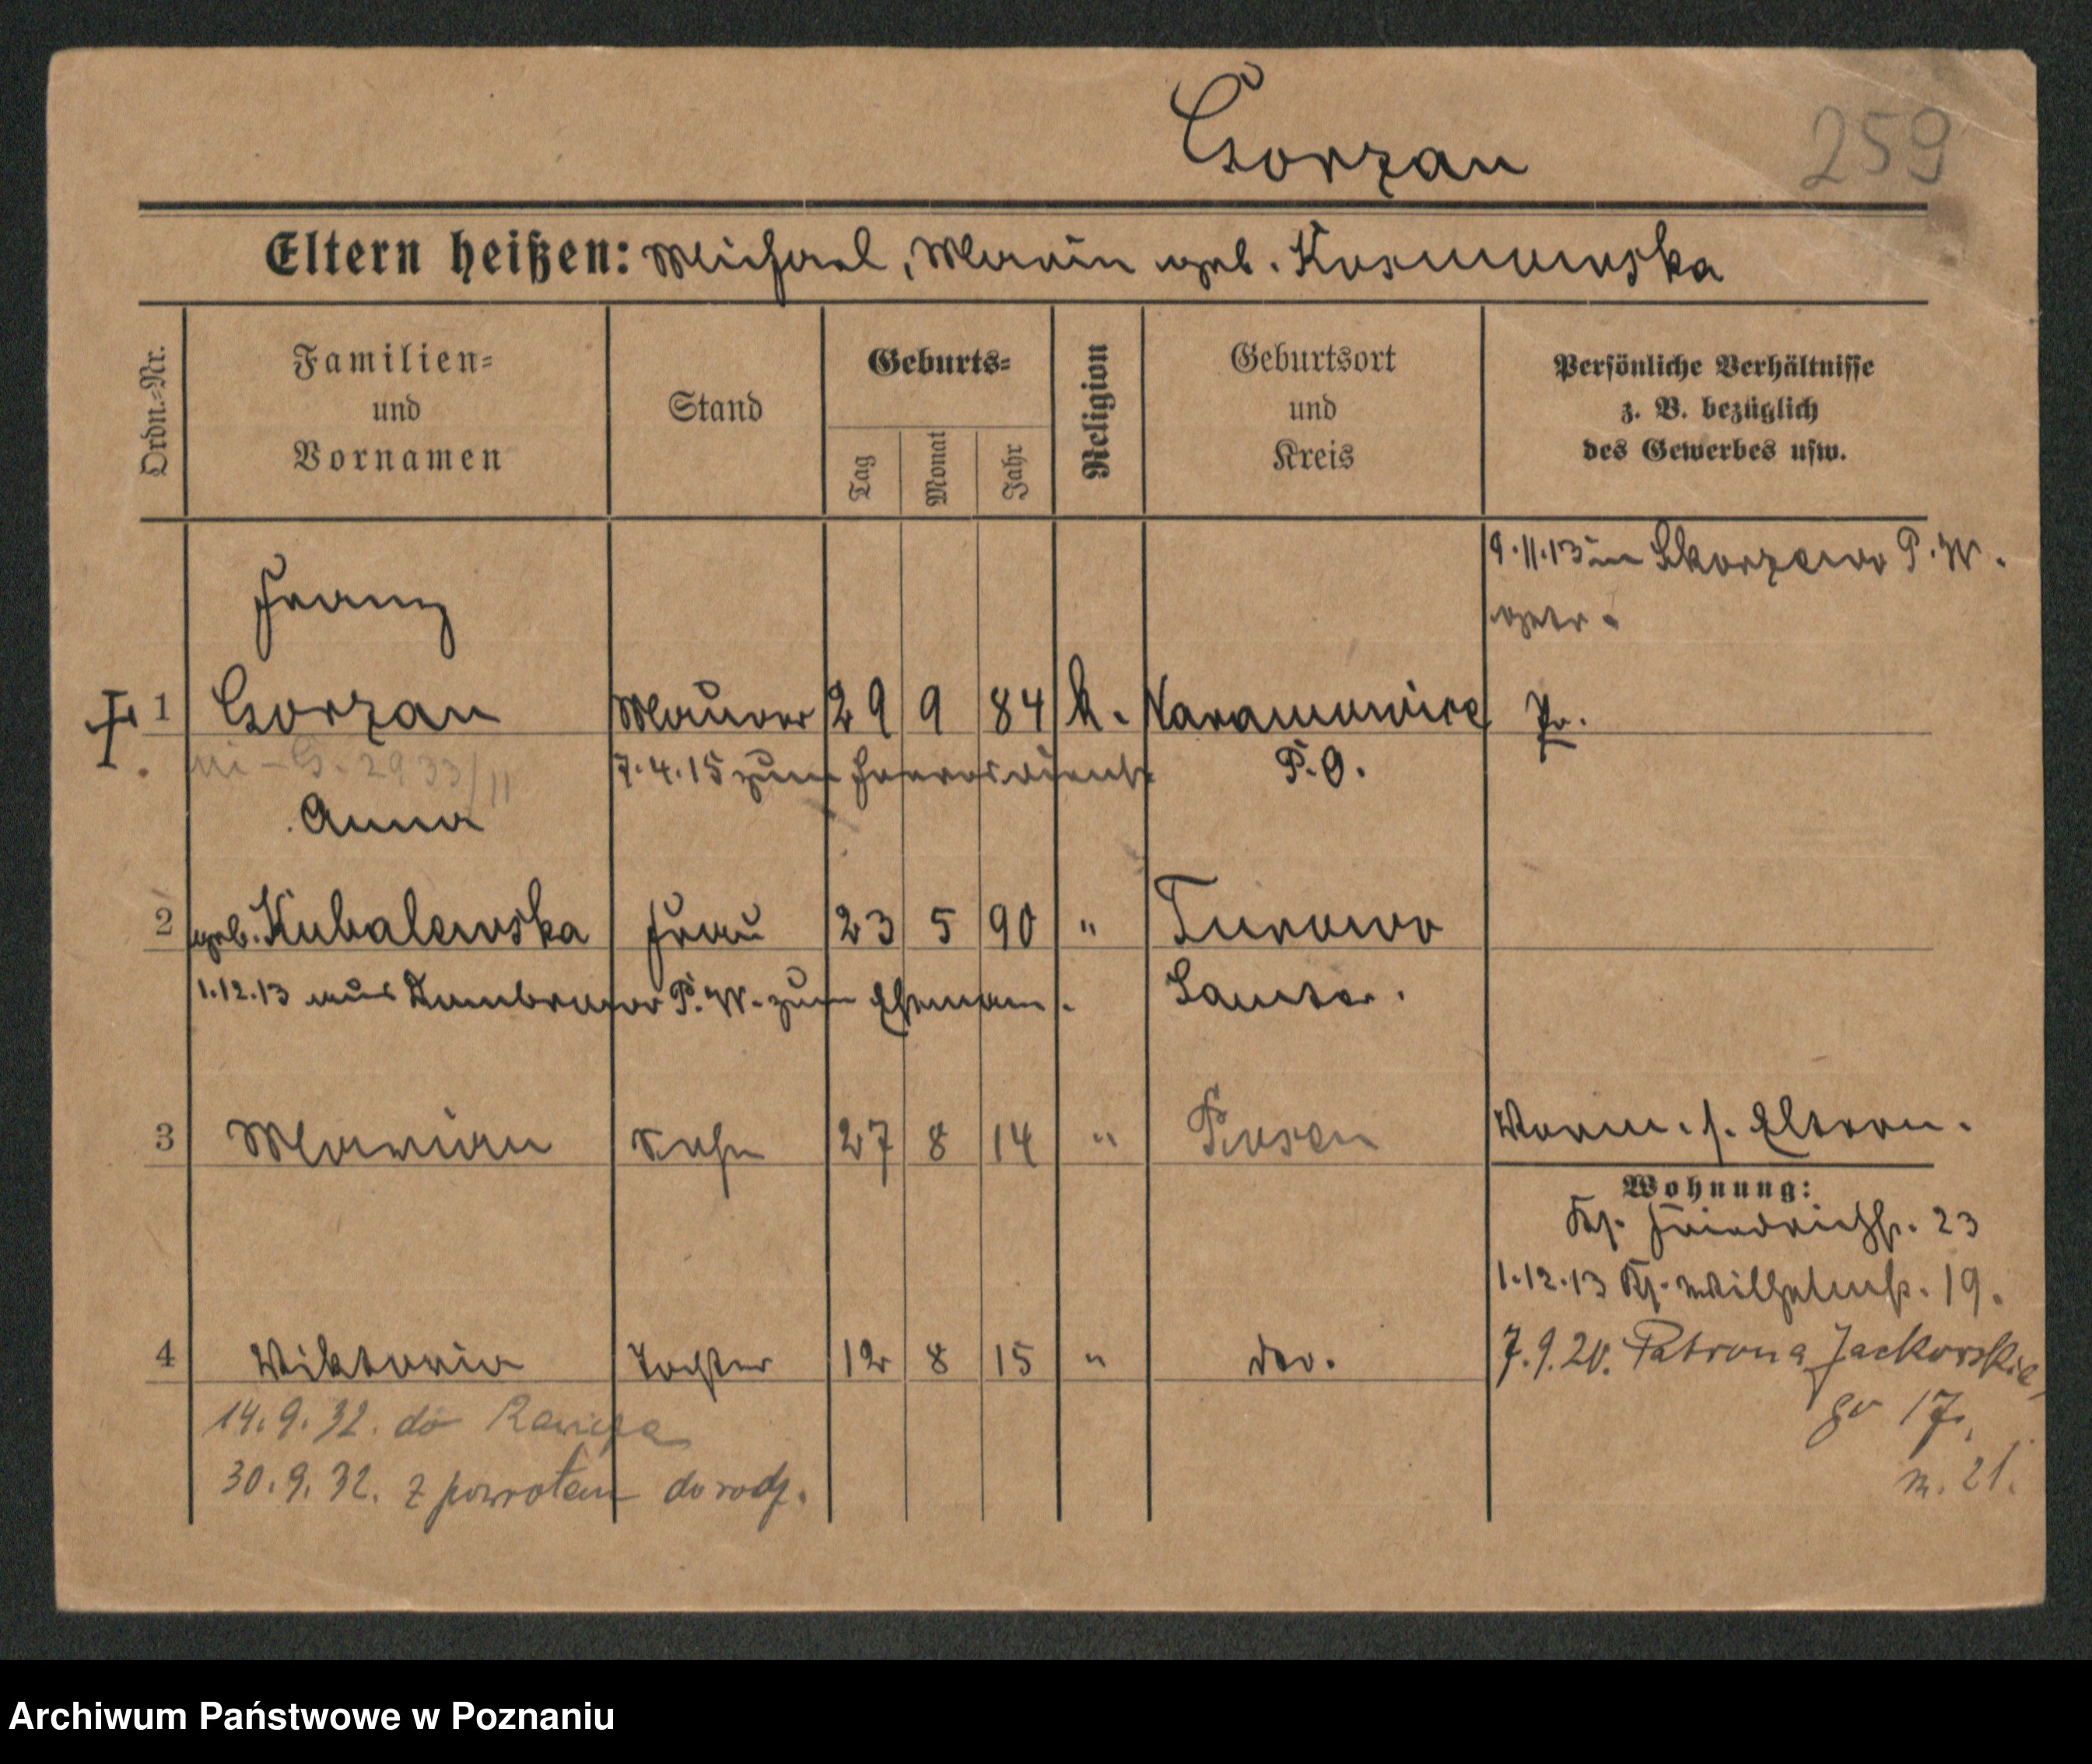 Gorzan
259
Eltern heißen: Michael, Marie geb. Kosmowska
Ordn.-Nr.
Familien-
und
Vornamen
Stand
Geburts-
Tag
Monat
Jahr
Religion
Geburtsort
und
Kreis
Persönliche Verhältnisse
z. B. bezüglich
des Gewerbes usw.
9.11.13 in Skorzewo P.W.
getr.
Franz
1 Gorzan Maurer 29 9 84 k. Naramowice Pr.
2933/11
7.4.15 zum Heeresdienst
P.O.
Anna
2 geb. Kubalewska Frau 23 5 90 " Turowo
1.12.13 aus Dombrowo P.W. zum Ehemann.
Samter.
3 Marian Sohn 27 8 14 " Posen
Vorm. s. Eltern.
Wohnung:
Kr. Friedrichstr. 23
1.12.13 Kr. Wilhelmstr. 19.
4 Wiktoria Tochter 12 8 15 " do.
7.9.20. Patrona Jackowskie
go 17.
m. 21.
14.9.32. do Rawicza
30.9.32. z powrotem do rodz.
Archiwum Państwowe w Poznaniu